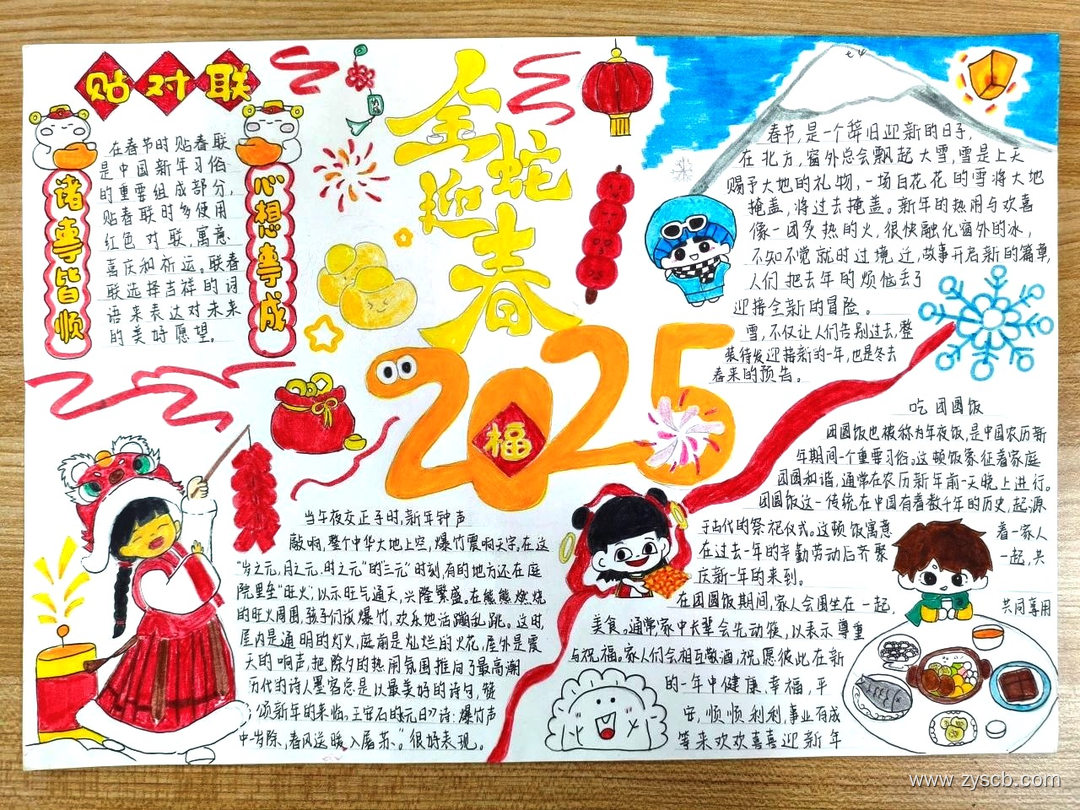 贴对联
在春节时贴春联
是中国新年习俗
的重要组成部分,
贴春联时多使用
红色对联,寓意
喜庆和祈运。联春
联选择吉祥的词
语来表达对未来
的美好愿望。
诸事皆顺
心想事成
金蛇
迎春
2025
福
春节,是一个辞旧迎新的日子,
在北方,窗外总会飘起大雪,雪是上天
赐予大地的礼物,一场白花花的雪将大地
掩盖,将过去掩盖。新年的热闹与欢喜
像一团炙热的火,很快融化窗外的冰,
不知不觉就时过境迁,故事开启新的篇章,
人们把去年的烦恼丢了
迎接全新的冒险。
雪,不仅让人们告别过去,整
装待发迎接新的一年,也是冬去
春来的预告。
吃团圆饭
团圆饭也被称为年夜饭,是中国农历新
年期间一个重要习俗。这顿饭象征着家庭
团圆和谐,通常在农历新年前一天晚上进行。
团圆饭这一传统在中国有着数千年的历史,起源
于古代的祭祀仪式。这顿饭寓意着一家人
在过去一年的辛勤劳动后齐聚一起,共
庆新一年的来到。
在团圆饭期间,家人会围坐在一起,共同享用
美食。通常家中长辈会先动筷,以表示尊重
与祝福。家人们会相互敬酒,祝愿彼此在新
的一年中健康、幸福,平
安,顺顺利利,事业有成
等来欢欢喜喜迎新年
当午夜交正子时,新年钟声
敲响,整个中华大地上空,爆竹震响天宇,在这
“岁之元,月之元,时之元”的“三元”时刻,有的地方还在庭
院里垒“旺火”,以示旺气通天,兴隆繁盛。在熊熊燃烧
的旺火周围,孩子们放爆竹,欢乐地活蹦乱跳。这时,
屋内是通明的灯火,庭前是灿烂的火花,屋外是震
天的响声,把除夕的热闹氛围推向了最高潮
历代的诗人墨客总是以最美好的诗句,赞
颂新年的来临。王安石的《元日》诗:爆竹声
中一岁除,春风送暖入屠苏、。”很好表现。
www.zyscb.com